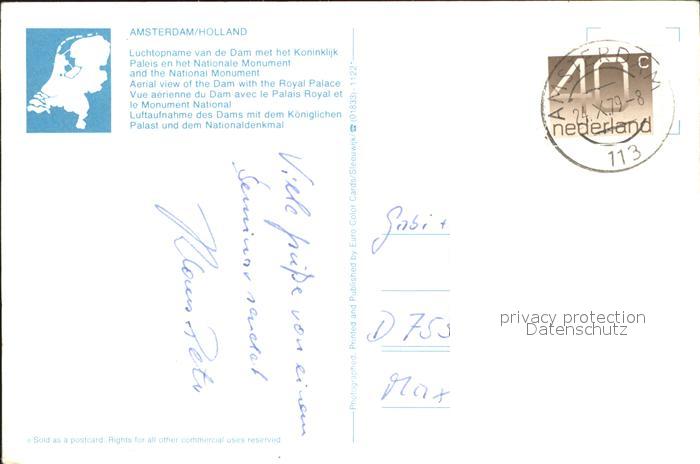 AMSTERDAM/HOLLAND
Luchtopname van de Dam met het Koninklijk
Paleis en het Nationale Monument
and the National Monument
Aerial view of the Dam with the Royal Palace
Vue aérienne du Dam avec le Palais Royal et
le Monument National
Luftaufnahme des Dams mit dem Königlichen
Palast und dem Nationaldenkmal
Viele Grüße von einem
Seminar sendet
Klaus-Peter
Photographed, Printed and Published by Euro Color Cards/Sleeuwijk ☎ (01833) - 1122*
40c
nederland
AMSTERDAM
24.X.79-8
113
Gabi +
D 753
Max
privacy protection
Datenschutz
Sold as a postcard. Rights for all other commercial uses reserved